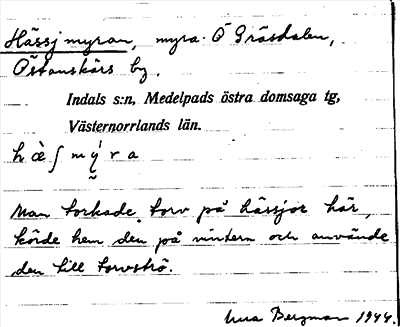 Hässjmyran, myra. Ö Gräsdalen,
Östanskärs by.
Indals s:n, Medelpads östra domsaga tg,
Västernorrlands län.
h æ̀ ʃ m ý r a
Man torkade torv på hässjor här,
körde hem den på vintern och använde
den till torvströ.
Bergman 1944.